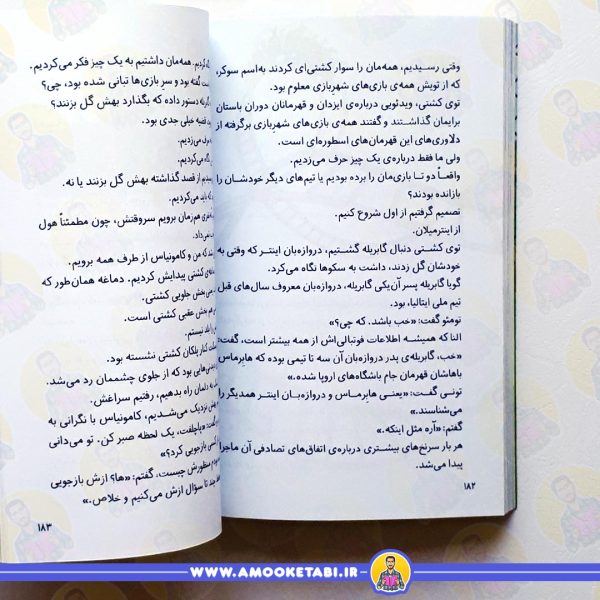 وقتی رسیدیم، همه‌مان را سوار کشتی‌ای کردند به‌اسم سوکر،
که از تویش همه‌ی بازی‌های شهربازی معلوم بود.
توی کشتی، ویدئویی درباره‌ی ایزدان و قهرمانان دوران باستان
برایمان گذاشتند و گفتند همه‌ی بازی‌های شهربازی برگرفته از
دلاوری‌های این قهرمان‌های اسطوره‌ای است.
ولی ما فقط درباره‌ی یک چیز حرف می‌زدیم.
واقعاً دو تا بازی‌مان را برده بودیم یا تیم‌های دیگر خودشان را
بازانده بودند؟
تصمیم گرفتیم از اول شروع کنیم.
از اینترمیلان.
توی کشتی دنبال گابریله گشتیم، دروازه‌بان اینتر که وقتی به
خودشان گل زدند، داشت به سکوها نگاه می‌کرد.
گویا گابریله پسر آن‌یکی گابریله، دروازه‌بان معروف سال‌های قبل
تیم ملی ایتالیا، بود.
تومئو گفت: «خب باشد. که چی؟»
النا که همیشه اطلاعات فوتبالی‌اش از همه بیشتر است، گفت:
«خب، گابریله‌ی پدر دروازه‌بان آن سه تا تیمی بوده که هابرماس
باهاشان قهرمان جام باشگاه‌های اروپا شده.»
تونی گفت: «یعنی هابرماس و دروازه‌بان اینتر همدیگر را
می‌شناسند.»
گفتم: «آره مثل اینکه.»
هر بار سرنخ‌های بیشتری درباره‌ی اتفاق‌های تصادفی آن ماجرا
پیدا می‌شد.
۱۸۲
کردیم. همه‌مان داشتیم به یک چیز فکر می‌کردیم.
گفته بود و سرِ بازی‌ها تبانی شده بود، چی؟
دستور داده که بگذارد بهش گل بزنند؟
قضیه خیلی جدی بود.
حرف می‌زدیم.
می‌کردیم.
از قصد گذاشته بهش گل بزنند یا نه.
باید می‌کردیم.
هم‌زمان برویم سروقتش، چون مطمئناً هول
که من و کامونیاس از طرف همه برویم.
کشتی پیدایش کردیم. دماغه همان‌طور که
بخش جلویی کشتی.
هم بخش عقبی کشتی است.
بلد نیستم.
کنار پلکان کشتی نشسته بود.
بود که از جلوی چشممان رد می‌شد.
به دلمان راه بدهیم، رفتیم سراغش.
نزدیک می‌شدیم، کامونیاس با نگرانی به
گفت: «پاچلفت، یک لحظه صبر کن. تو می‌دانی
کسی بازجویی کرد؟»
منظورش چیست، گفتم: «ها؟ ازش بازجویی
چند تا سؤال ازش می‌کنیم و خلاص.»
۱۸۳
WWW.AMOOKETABI.IR